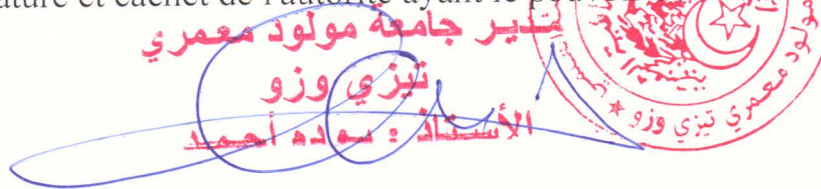 et cachet de l'autorité ayant le
مدير جامعة مولود معمري
تيزي وزو
الأستاذ : بوده أحمد
مولود معمري تيزي وزو ★